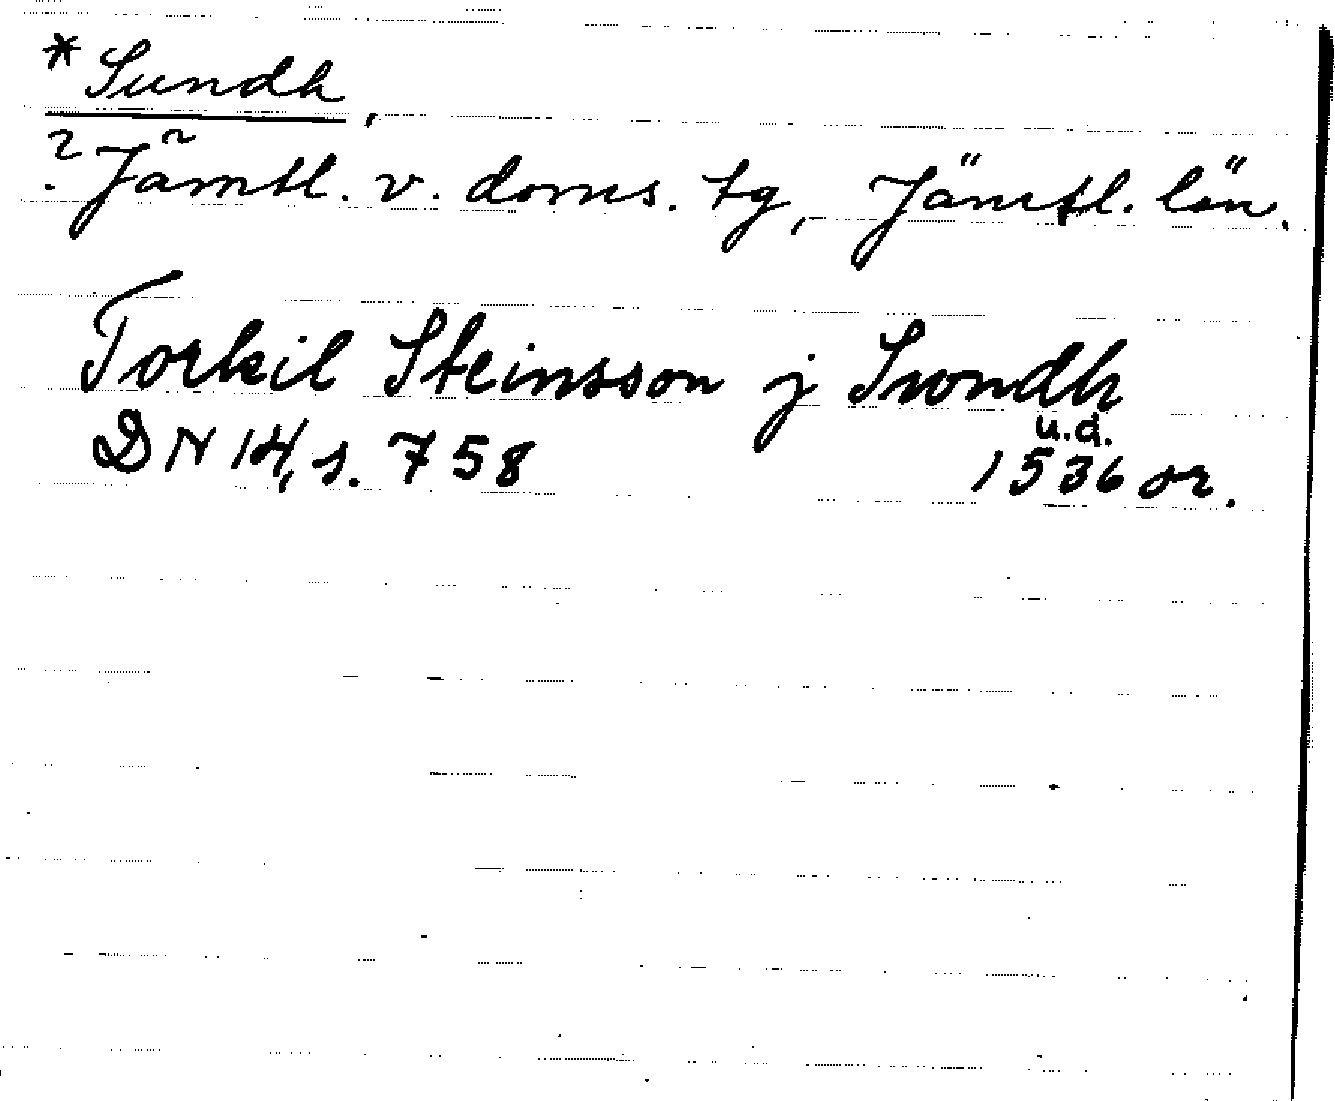 *Sundh,
? Jämtl. v. doms. tg, Jämtl. län.
Torkil Steinsson j Swndh
u.d.
DN 14, s. 758 1536 or.